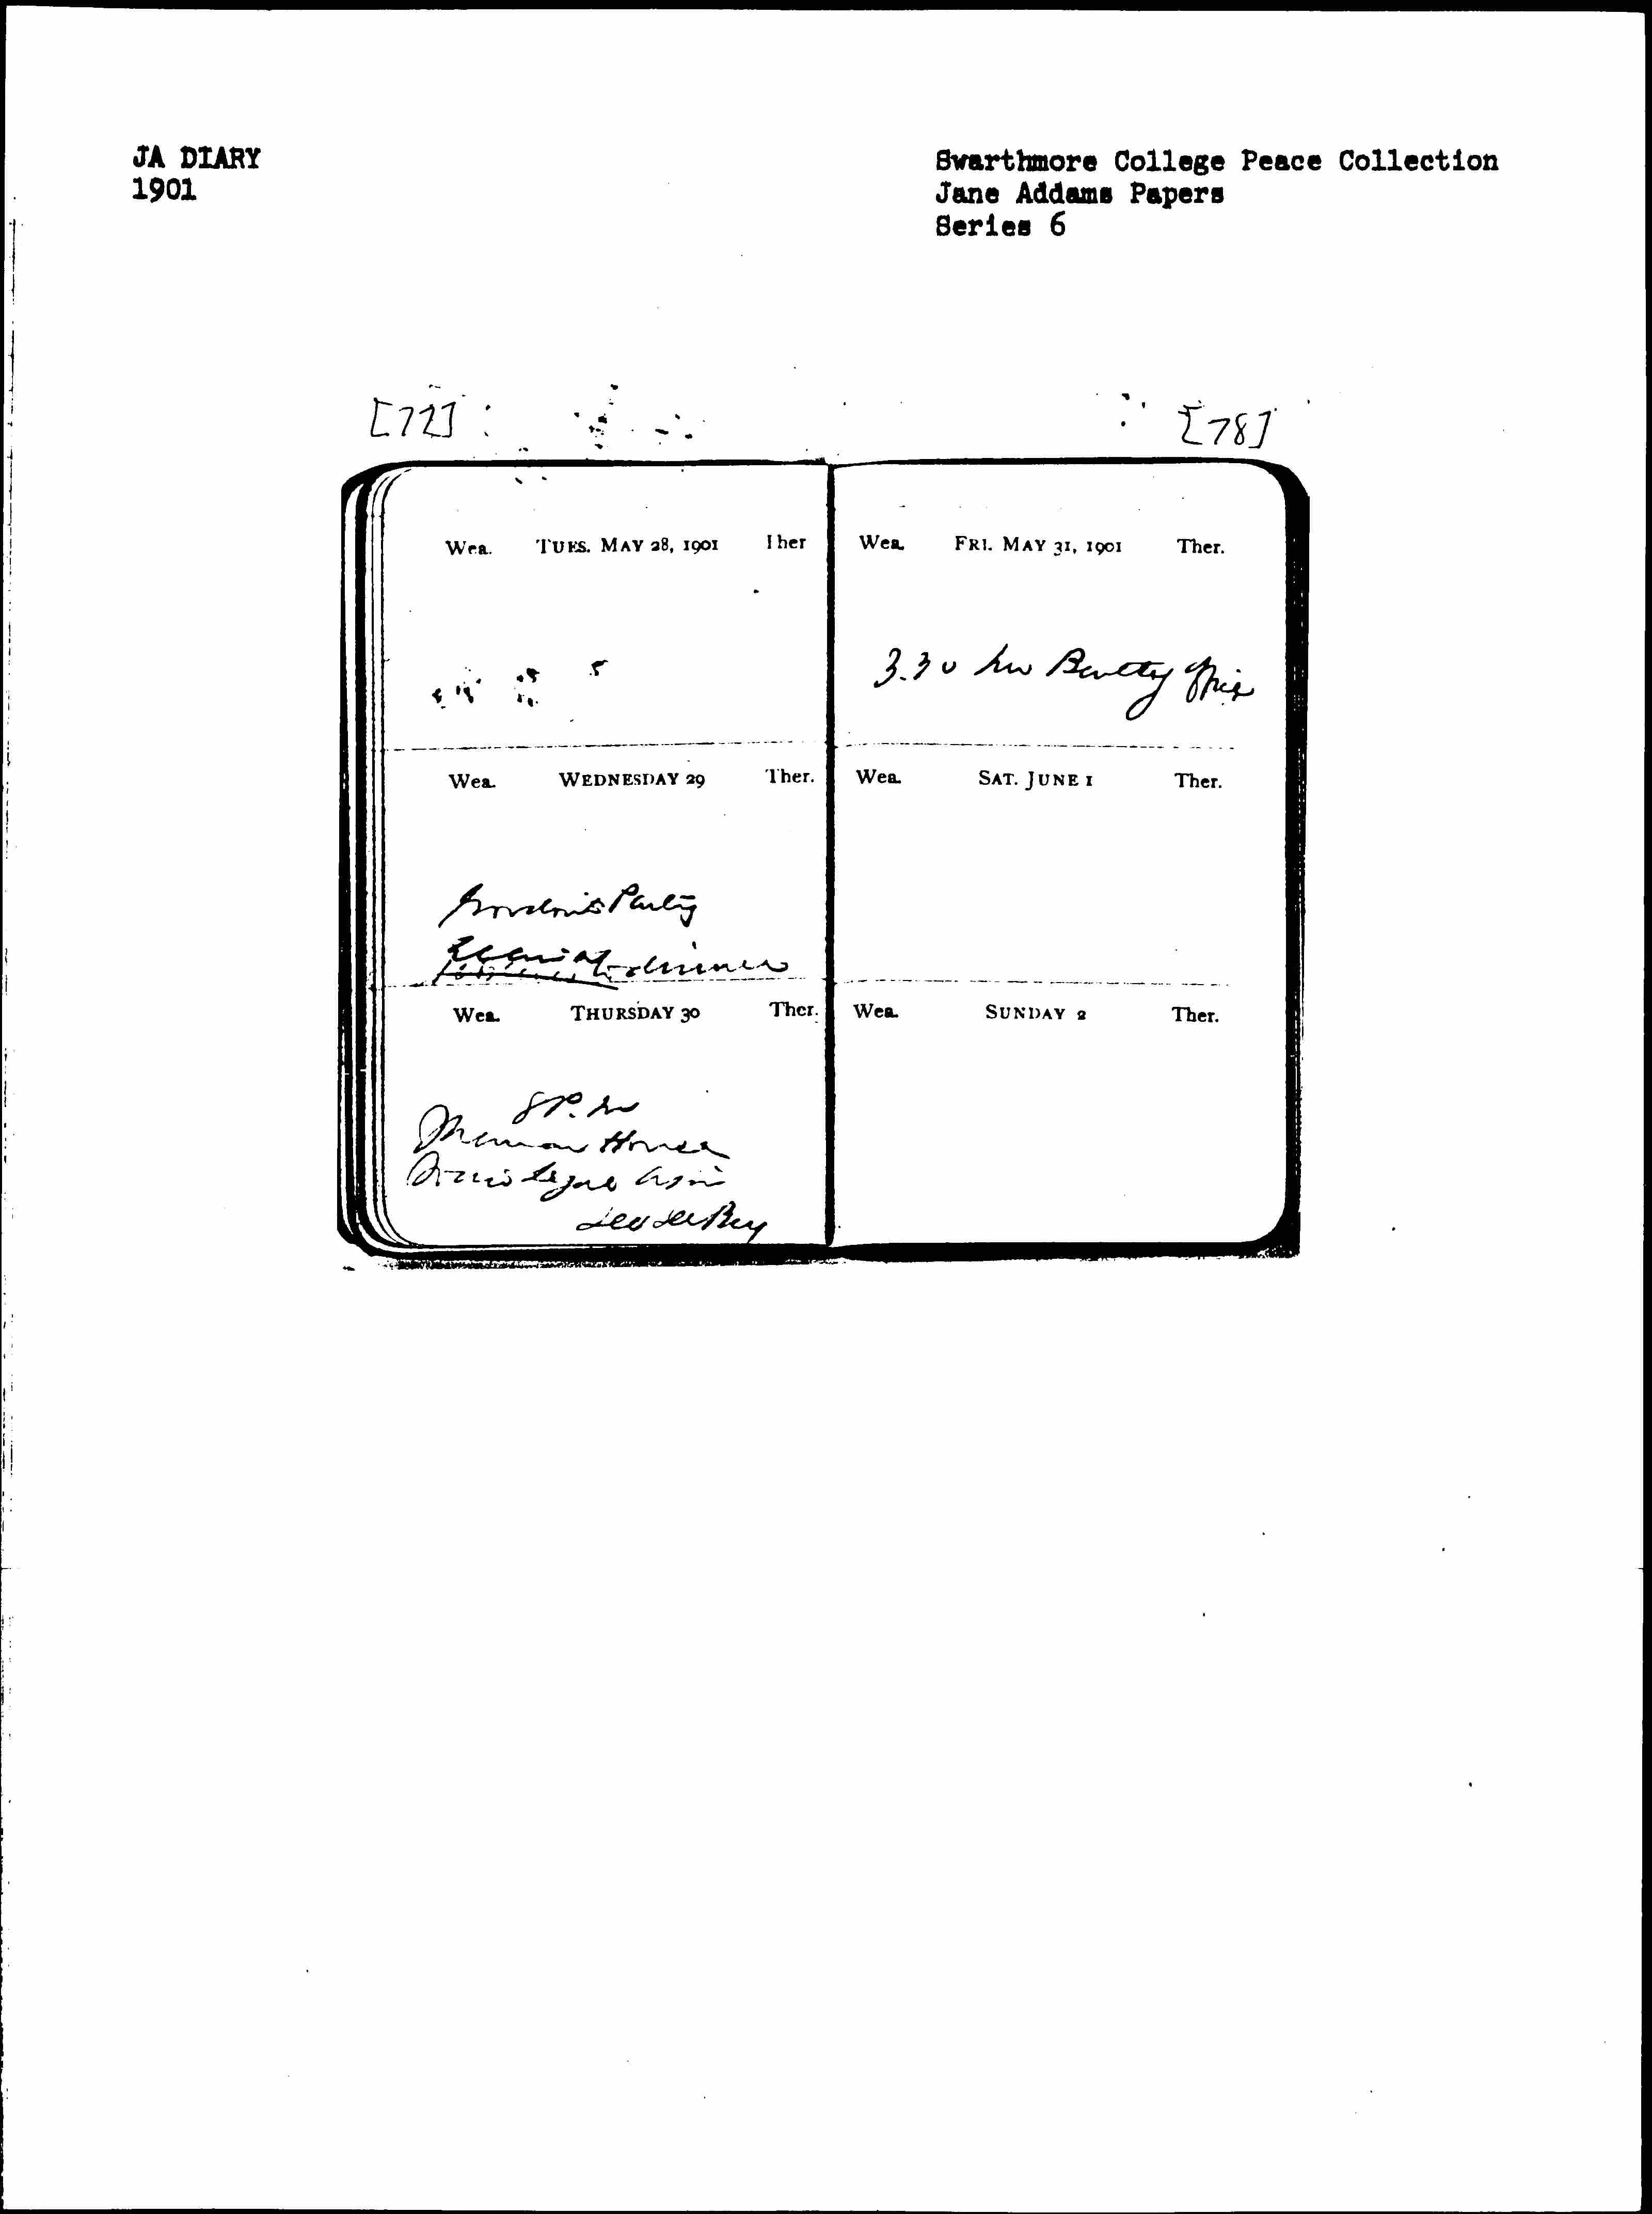 JA DIARY
1901
Swarthmore College Peace Collection
Jane Addams Papers
Series 6
[77]
[78]
Wea. TUES. MAY 28, 1901 Ther
Wea. WEDNESDAY 29 Ther.
Gordon's Party
dinner
Wea. THURSDAY 30 Ther.
8 P. M
House
Wea. FRI. MAY 31, 1901 Ther.
3.30
Wea. SAT. JUNE 1 Ther.
Wea. SUNDAY 2 Ther.